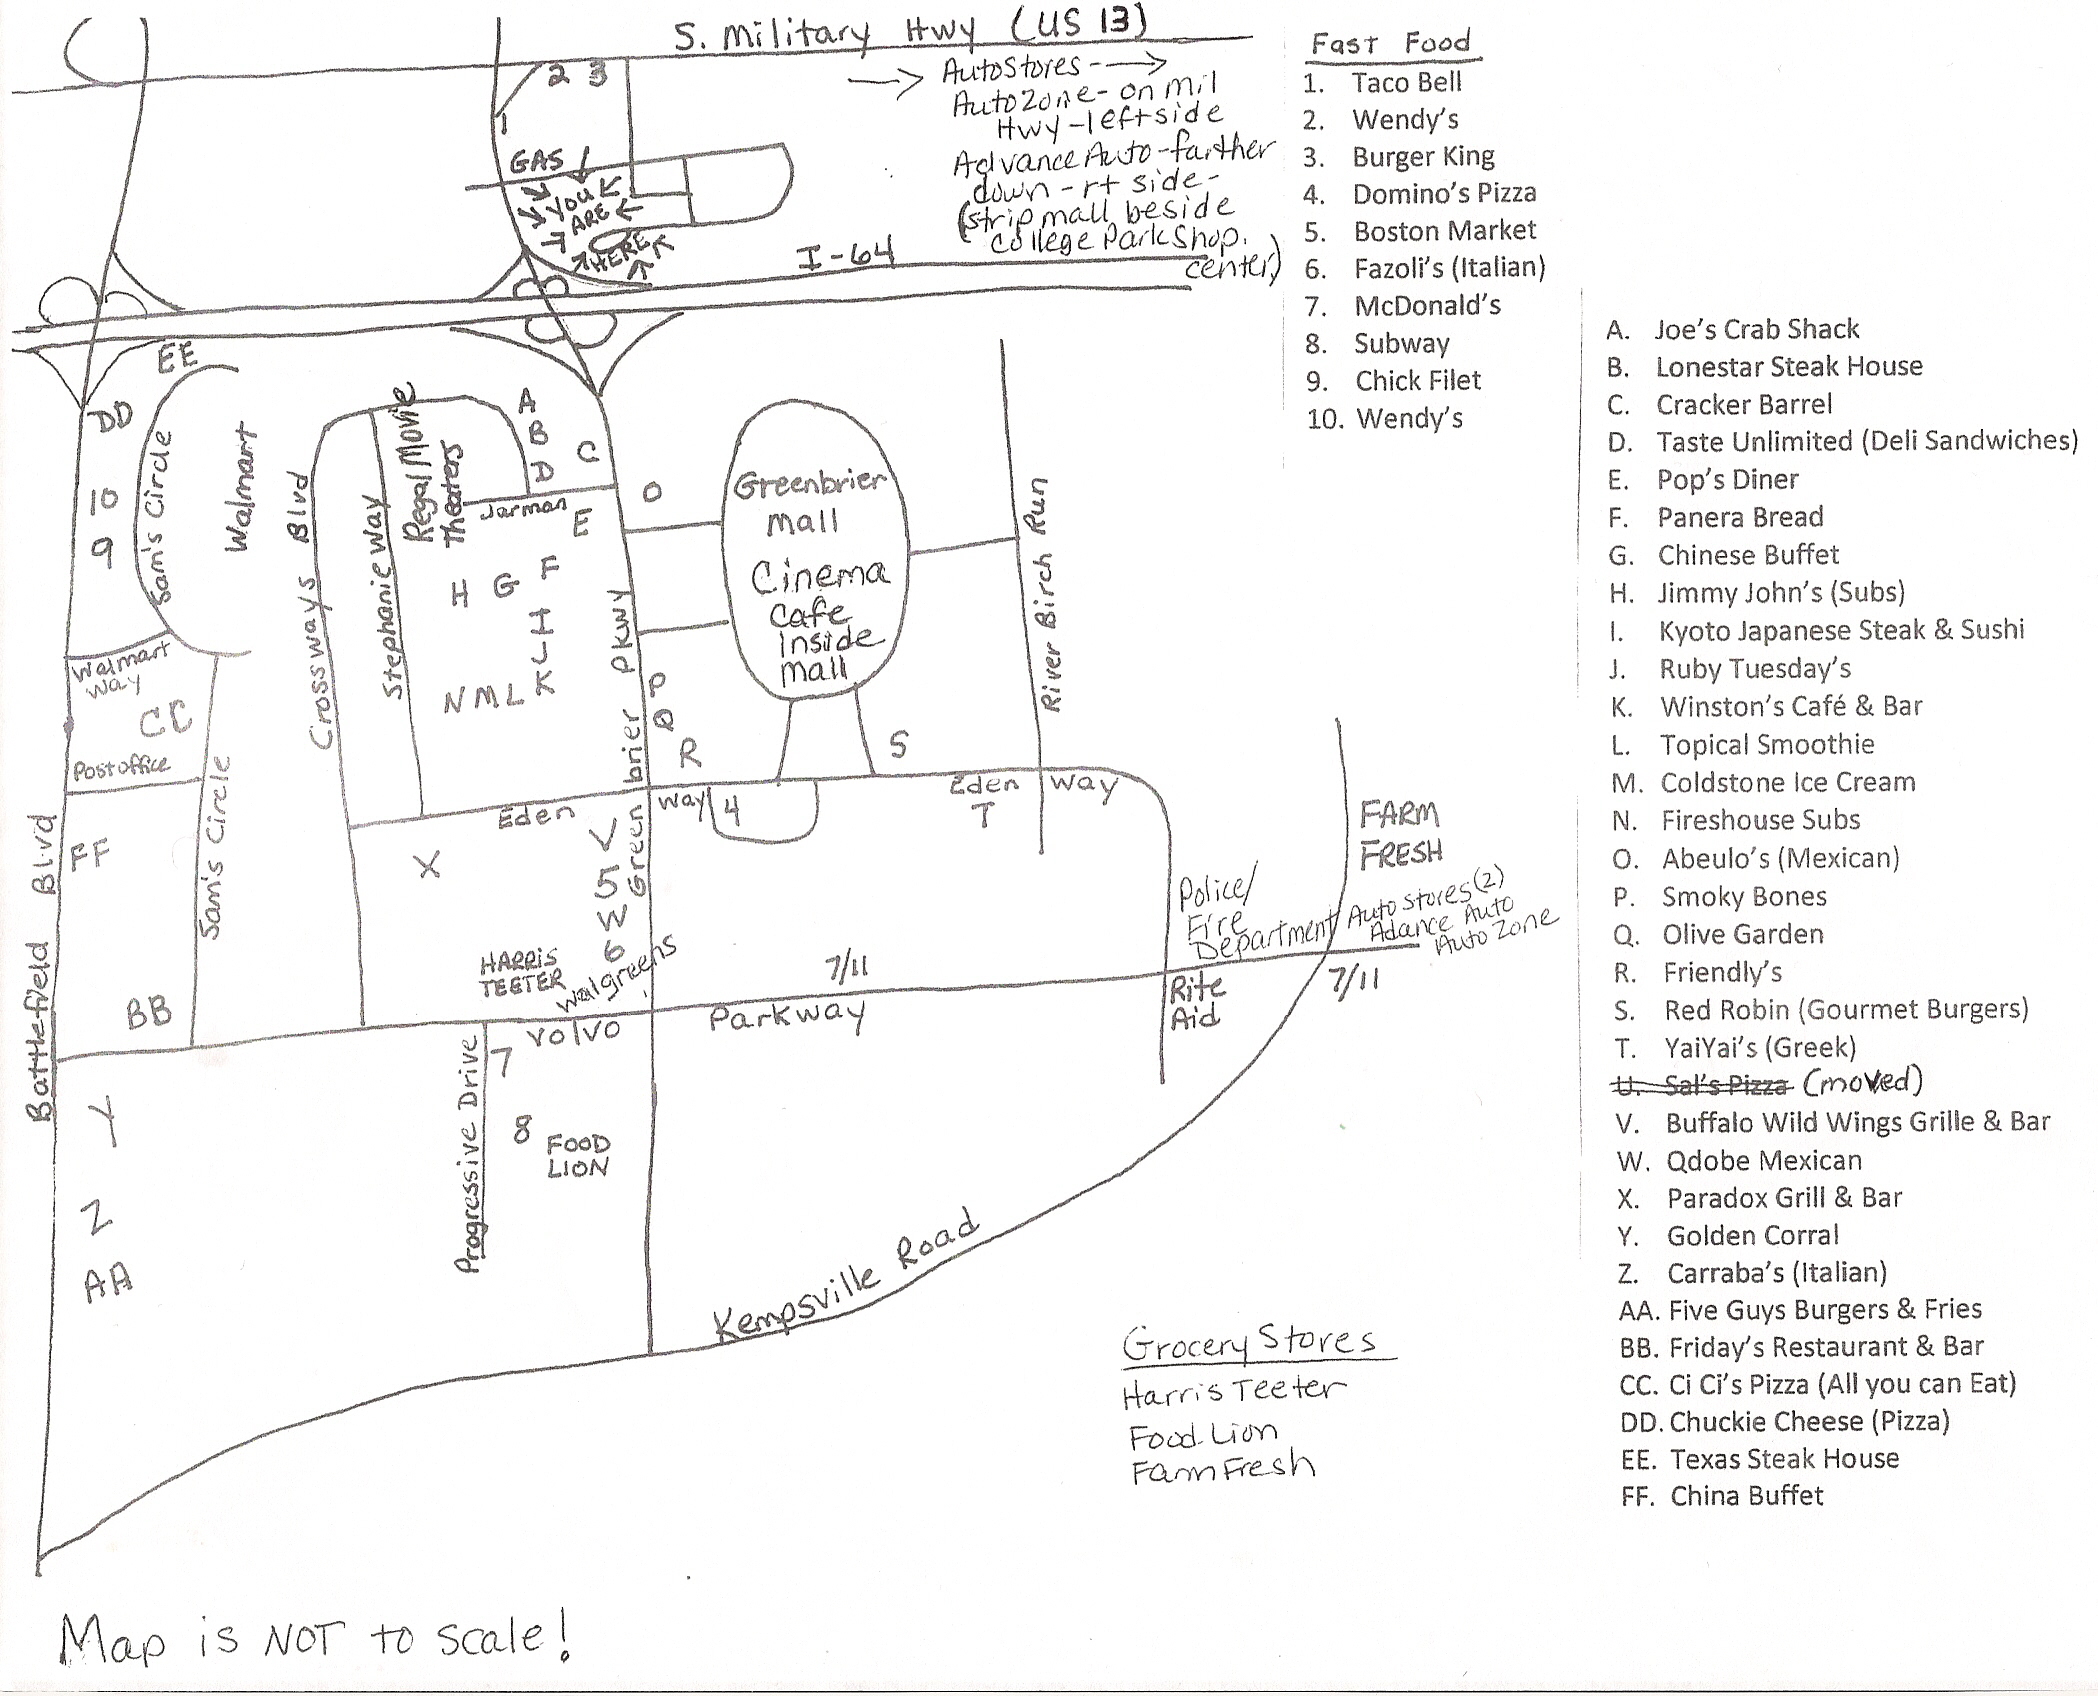 S. Military Hwy (US 13)
2 3
1
GAS
YOU
ARE
HERE
AutoStores
AutoZone - on mil
Hwy - left side
Advance Auto - farther
down - rt side -
(strip mall beside
College Park Shop.
center)
I-64
EE
DD
10
9
Sam's Circle
Walmart
Walmart
Way
CC
Post office
Sam's Circle
FF
BB
Battlefield Blvd
Crossways Blvd
Stephanie Way
Regal Movie
Theaters
A
B
C
D
Jarman
E
F
H G
I
J
K
N M L
O
Greenbrier
Mall
Cinema
Cafe
Inside
Mall
River Birch Run
P
Q
R
S
Greenbrier Pkwy
Eden Way
4
Eden Way
T
X
V
5
W
6
HARRIS
TEETER
Walgreens
7/11
Police/
Fire
Department
FARM
FRESH
Auto stores (2)
Adance Auto
Auto Zone
7/11
Rite
Aid
Volvo
Parkway
Progressive Drive
7
8
FOOD
LION
Y
Z
AA
Kempsville Road
Grocery Stores
Harris Teeter
Food Lion
Farm Fresh
Map is NOT to scale!
Fast Food
1. Taco Bell
2. Wendy's
3. Burger King
4. Domino's Pizza
5. Boston Market
6. Fazoli's (Italian)
7. McDonald's
8. Subway
9. Chick Filet
10. Wendy's
A. Joe's Crab Shack
B. Lonestar Steak House
C. Cracker Barrel
D. Taste Unlimited (Deli Sandwiches)
E. Pop's Diner
F. Panera Bread
G. Chinese Buffet
H. Jimmy John's (Subs)
I. Kyoto Japanese Steak & Sushi
J. Ruby Tuesday's
K. Winston's Café & Bar
L. Topical Smoothie
M. Coldstone Ice Cream
N. Fireshouse Subs
O. Abeulo's (Mexican)
P. Smoky Bones
Q. Olive Garden
R. Friendly's
S. Red Robin (Gourmet Burgers)
T. YaiYai's (Greek)
U. Sal's Pizza (moved)
V. Buffalo Wild Wings Grille & Bar
W. Qdobe Mexican
X. Paradox Grill & Bar
Y. Golden Corral
Z. Carraba's (Italian)
AA. Five Guys Burgers & Fries
BB. Friday's Restaurant & Bar
CC. Ci Ci's Pizza (All you can Eat)
DD. Chuckie Cheese (Pizza)
EE. Texas Steak House
FF. China Buffet